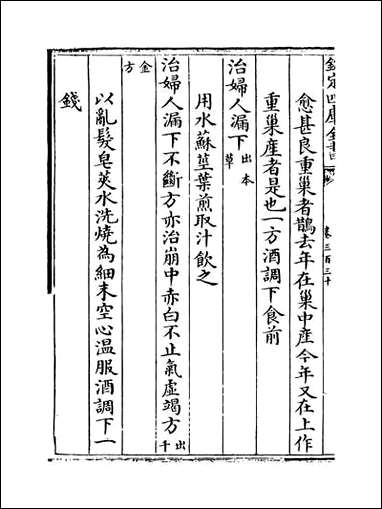 欽定四庫全書
卷三百三十
愈甚良重巢者鵲去年在巢中產今年又在上作
重巢產者是也一方酒調下食前
治婦人漏下出本草
用水蘇莖葉煎取汁飲之
治婦人漏下不斷方亦治崩中赤白不止氣虛竭方出千
金方
以亂髮皂莢水洗燒為細末空心溫服酒調下一
錢